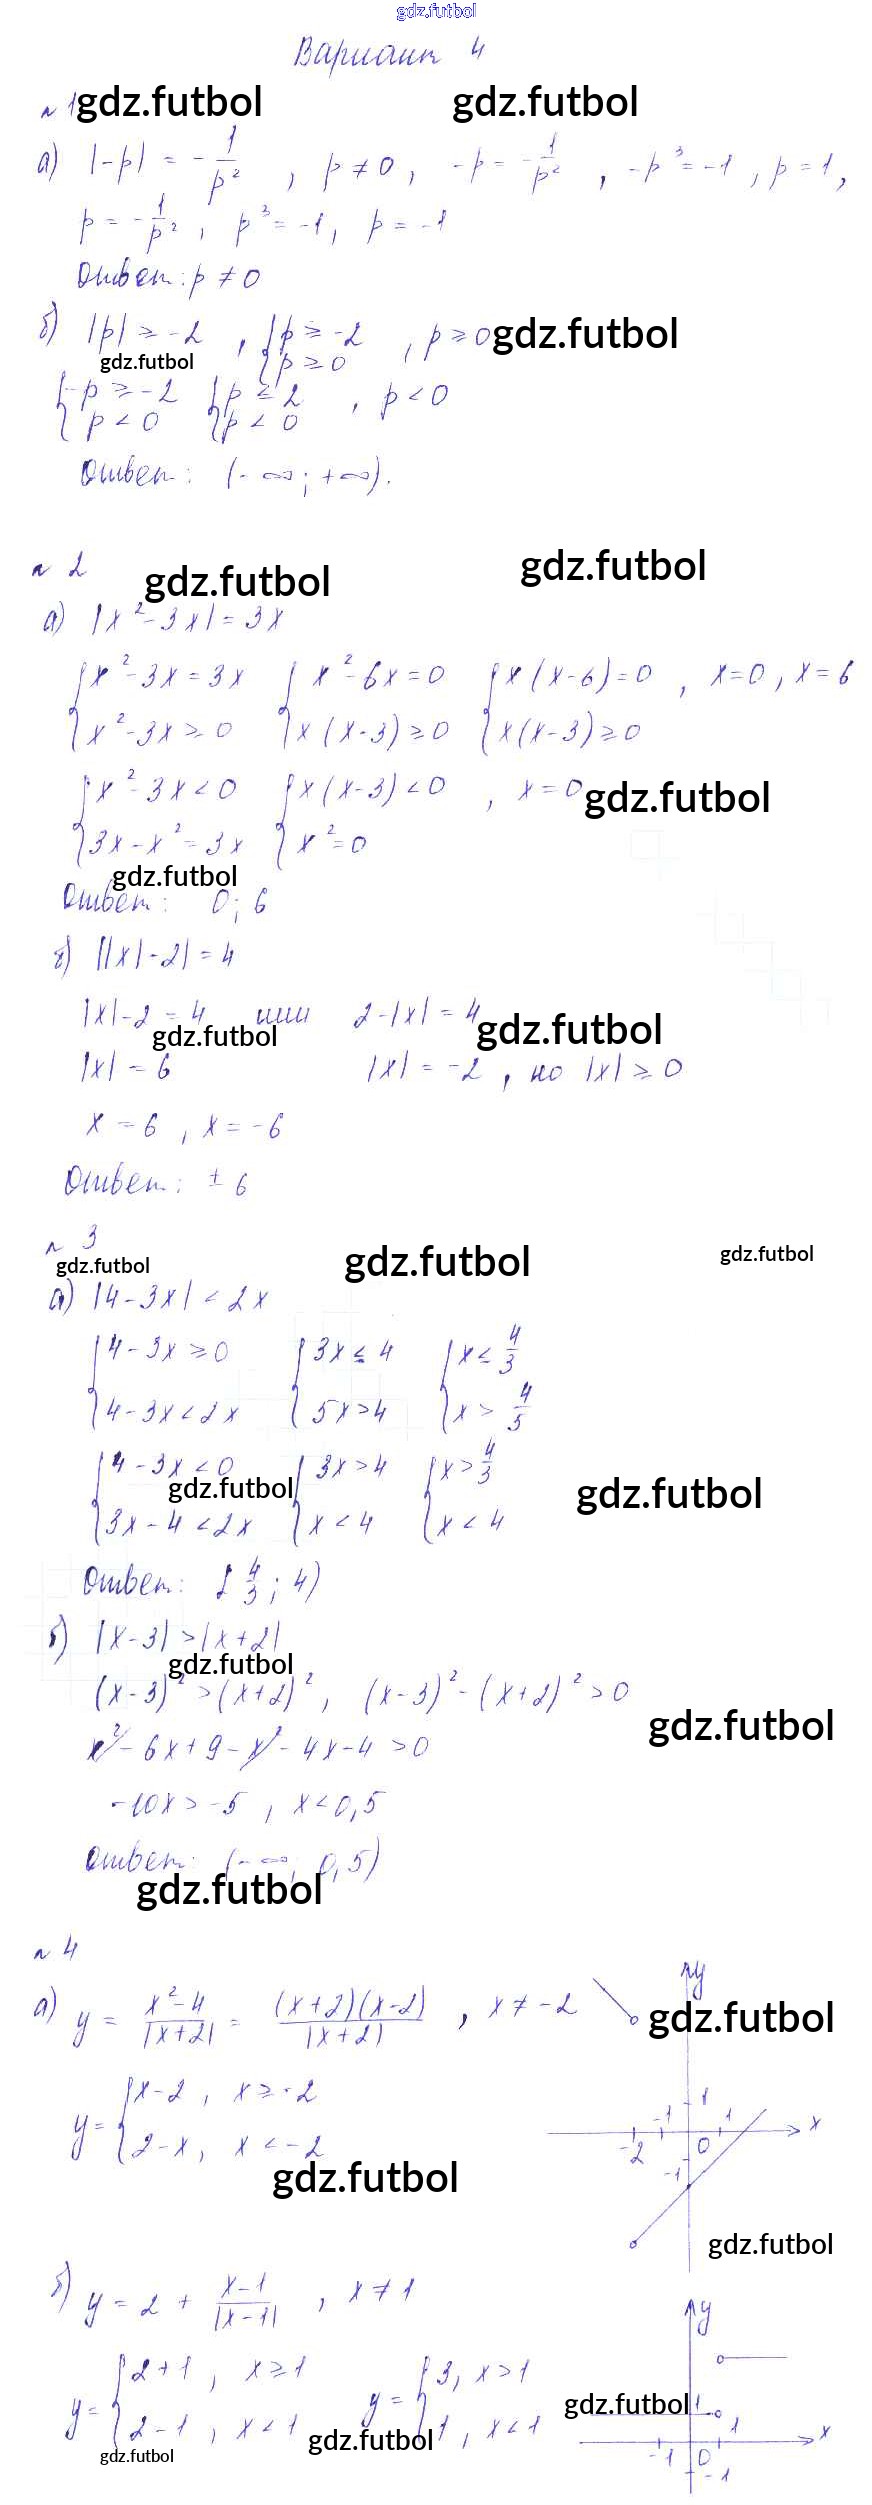 gdz.futbol
Вариант 4
№ 1 gdz.futbol gdz.futbol
а) |-p| = -1/p², p ≠ 0, -p = -1/p², -p³ = -1, p = 1,
p = -1/p², p³ = -1, p = -1
Ответ: p ≠ 0
б) |p| ≥ -2, {p ≥ -2 p ≥ 0, p ≥ 0 gdz.futbol
gdz.futbol
{-p ≥ -2 p < 0 {p ≤ 2 p < 0, p < 0
Ответ: (-∞; +∞).
№ 2 gdz.futbol gdz.futbol
а) |x² - 3x| = 3x
{x² - 3x = 3x {x² - 6x = 0 {x(x-6) = 0, x = 0, x = 6
x² - 3x ≥ 0 x(x-3) ≥ 0 x(x-3) ≥ 0
{x² - 3x < 0 {x(x-3) < 0, x = 0 gdz.futbol
3x - x² = 3x x² = 0
gdz.futbol
Ответ: 0; 6
б) ||x| - 2| = 4
|x| - 2 = 4 или 2 - |x| = 4 gdz.futbol
gdz.futbol
|x| = 6 |x| = -2, но |x| ≥ 0
x = 6, x = -6
Ответ: ± 6
№ 3
gdz.futbol gdz.futbol gdz.futbol
а) |4 - 3x| < 2x
{4 - 3x ≥ 0 {3x ≤ 4 {x ≤ 4/3
4 - 3x < 2x 5x > 4 x > 4/5
{4 - 3x < 0 {3x > 4 {x > 4/3
gdz.futbol gdz.futbol
3x - 4 < 2x x < 4 x < 4
Ответ: [4/3; 4)
б) |x - 3| > |x + 2|
gdz.futbol
(x-3)² > (x+2)², (x-3)² - (x+2)² > 0
gdz.futbol
x² - 6x + 9 - x² - 4x - 4 > 0
-10x > -5, x < 0,5
Ответ: (-∞; 0,5)
gdz.futbol
№ 4
а) y = x²-4/|x+2| = (x+2)(x-2)/|x+2|, x ≠ -2 y gdz.futbol
y = {x-2, x ≥ -2 1 -1 1 x
2-x, x < -2 -2 0 -1
gdz.futbol
gdz.futbol
б) y = 2 + x-1/|x-1|, x ≠ 1 y
y = {2+1, x ≥ 1 y = {3, x > 1 gdz.futbol 1
2-1, x < 1 1, x < 1 1 x
gdz.futbol
gdz.futbol -1 0 -1